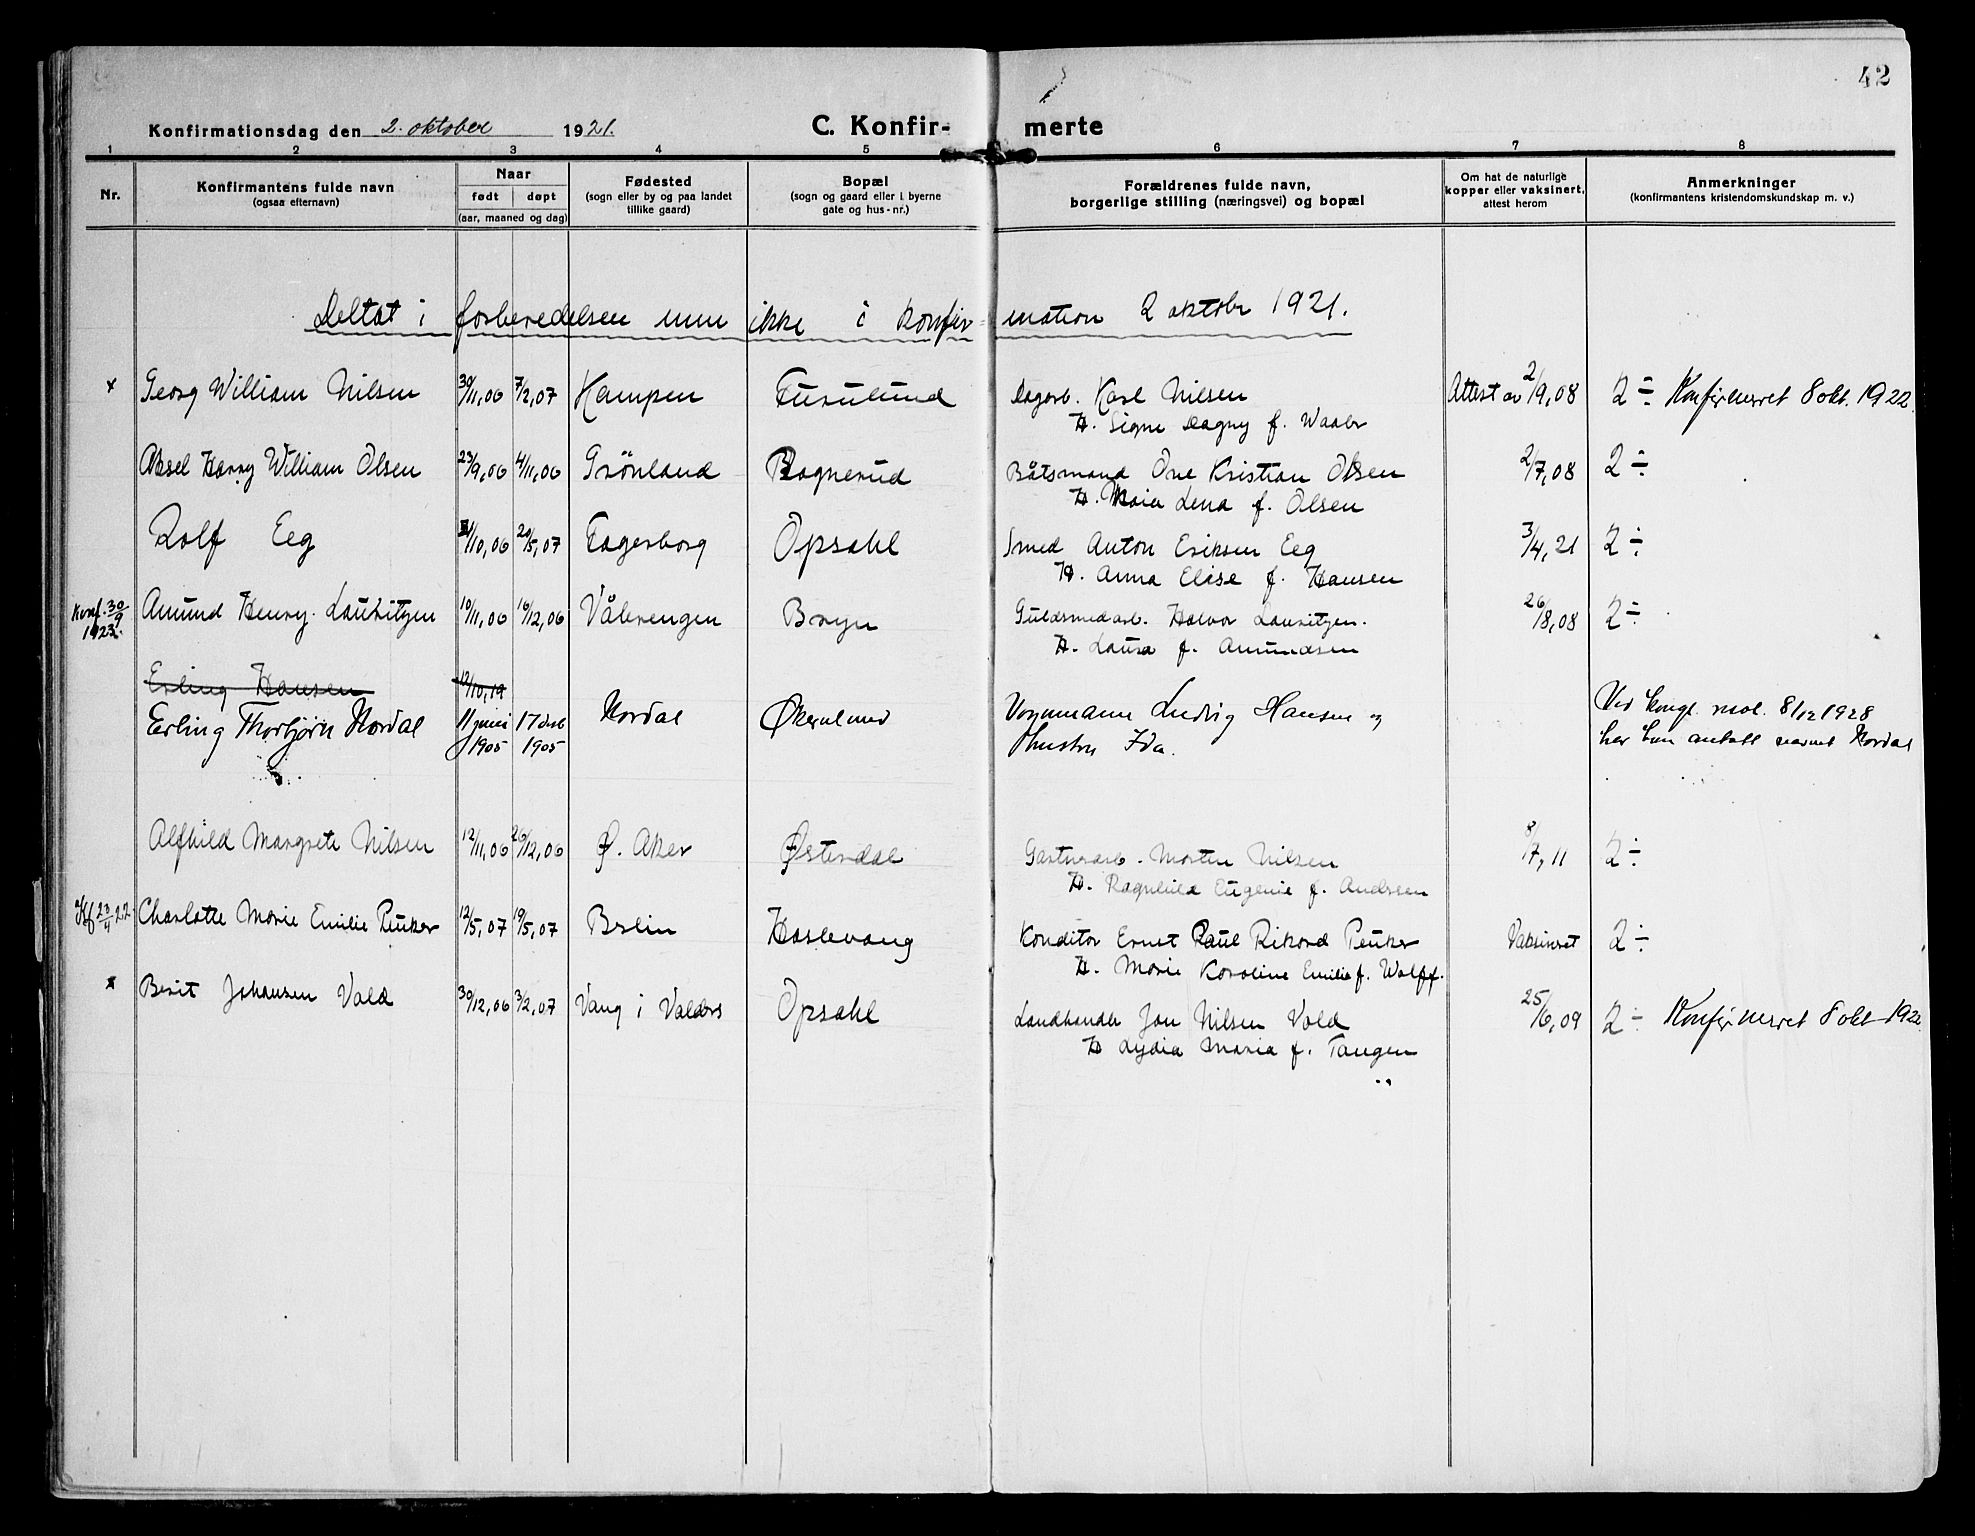 42
Konfirmationsdag den 2. oktober 1921.
C. Konfir- merte
1 2 3 4 5 6 7 8
Nr.
Konfirmantens fulde navn
(ogsaa efternavn)
Naar
født døpt
(aar, maaned og dag)
Fødested
(sogn eller by og paa landet
tillike gaard)
Bopæl
(sogn og gaard eller i byerne
gate og hus-nr.)
Forældrenes fulde navn,
borgerlige stilling (næringsvei) og bopæl
Om hat de naturlige
kopper eller vaksinert,
attest herom
Anmerkninger
(konfirmantens kristendomskundskap m. v.)
Deltat i forberedelsen men ikke i konfir- mation 2 oktobr 1921.
x Georg William Nilsen 30/11,06 7/2,07 Kampen Furulund Dagarb. Karl Nilsen Attest av 2/9,08 2÷ Konfirmeret 8 okt. 1922
H. Signe Dagny f. Waaler
Aksel Harry William Olsen 23/9,06 4/11,06 Grönland Rognerud Båtsmand One Kristian Olsen 2/7,08 2÷
H. Maia Lena f. Olsen
Rolf Eeg /10,06 20/5,07 Fagerborg Opsahl Smed Anton Eriksen Eeg 3/4,21 2÷
H. Anna Elise f. Hansen
Konf. 30/9 1923. Amund Henry Lauritzen 10/11,06 16/12,06 Vålerengen Bryn Guldsmedarb. Halvor Lauritzen. 26/8,08 2÷
H. Laura f. Amundsen
Erling Hansen 12/10,19
Erling Thorbjørn Nordal 11 juni 1905 17 des 1905 Nordal Økernlund Vognmann Ludvig Hansen og
hustru Ida.
Ved kongl. resol. 8/12 1928
har han antatt navnet Nordal
Alfhild Margrete Nilsen 12/11,06 26/12,06 Ø. Aker Østerdal Gartnerarb. Morten Nilsen 8/7,11 2÷
H. Ragnhild Eugenie f. Andrsen
Kf 23/4 22 Charlotte Marie Emilie Peuker 12/5,07 19/5,07 Berlin Haslevang Konditor Ernst Paul Rikard Peuker Vaksineret 2÷
H. Marie Karoline Emilie f. Wolff.
x Berit Johansen Vold 30/12,06 3/2,07 Vang i Valdres Opsahl Landhandler Jon Nilsen Vold 25/6,09 2÷ Konfirmeret 8 okt 1922
H Lydia Maria f. Tangen